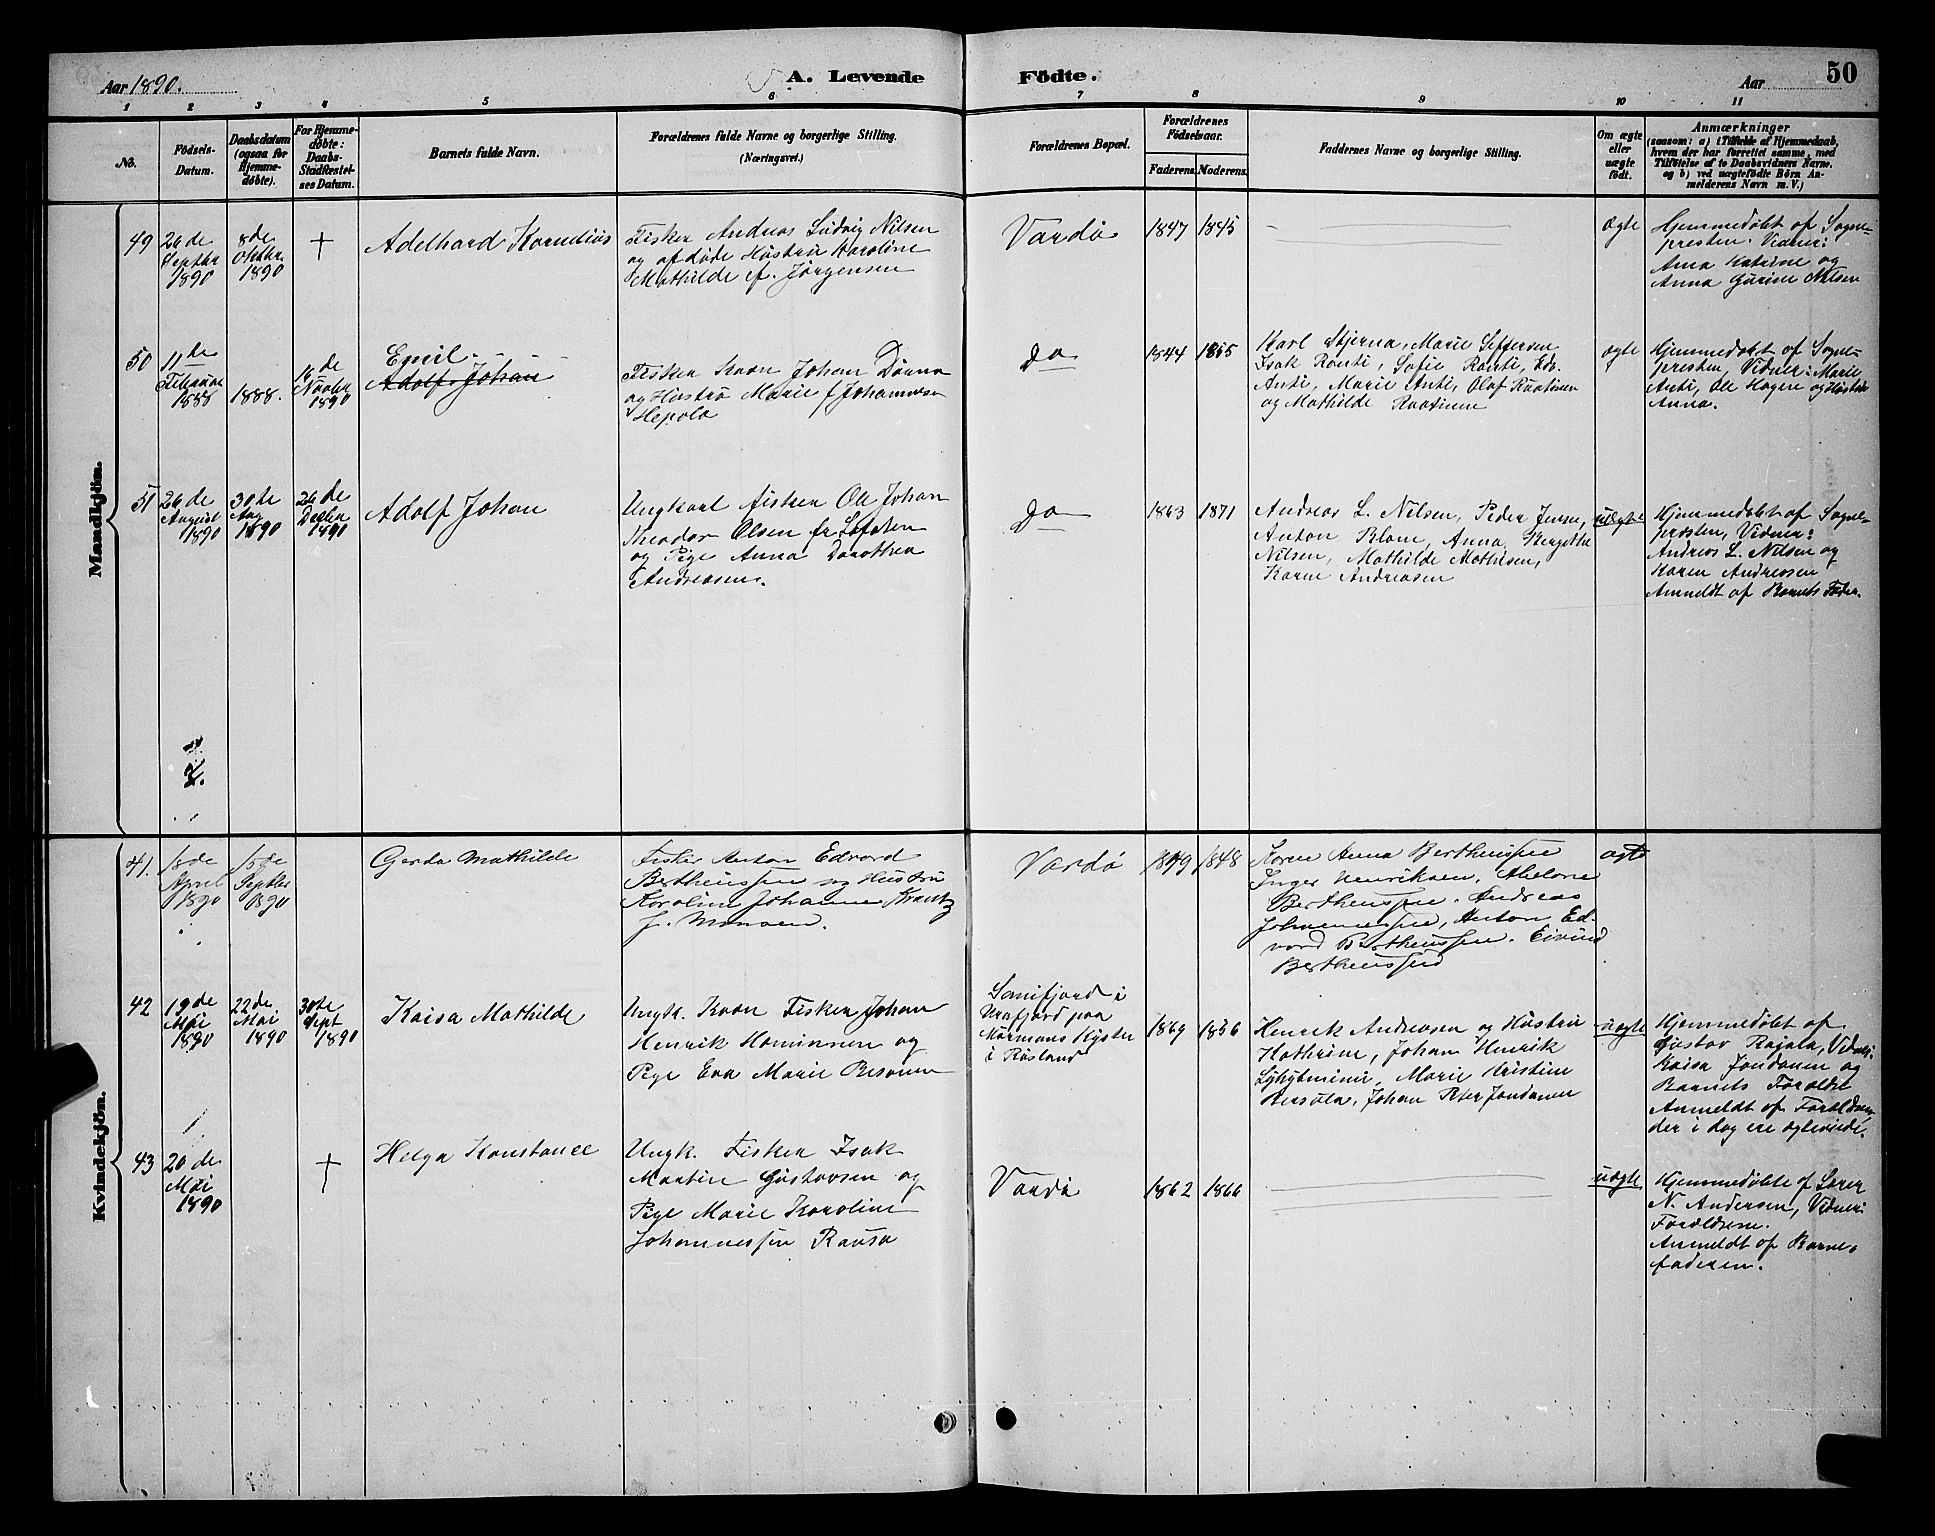 Aar 1890.
A. Levende Födte.
Aar
50
1 2 3 4 5 6 7 8 9 10 11
No.
Födsels-Datum.
Daabsdatum (ogsaa for Hjemme-döbte).
For Hjemme-döbte: Daabs-Stadfæstel-ses Datum.
Barnets fulde Navn.
Forældrenes fulde Navne og borgerlige Stilling.
(Næringsvei.)
Forældrenes Bopæl.
Forældrenes Födselsaar.
Faderens. Moderens.
Faddernes Navne og borgerlige Stilling.
Om ægte eller uægte födt.
Anmærkninger
(saasom: a) i Tilfælde af Hjemmedaab,
hvem der har forrettet samme, med
Tilföielse af to Daabsvidners Navne.
og b) ved uægtefödte Börn An-
melderens Navn m. V.)
Mandkjön.
49
26de
Septbr
1890
8de
Oktbr.
1890
†
Adelhard Kornelius
Fisker Andreas Ludvig Nilsen
og afdøde Hustru Karoline
Mathilde f. Jørgensen
Vardø
1847 1845
ægte
Hjemmedøbt af Sogne-
presten. Vidner:
Ana Katrine og
Anna Gurine Nilsen
50
11de
Februar
1888
1888.
16de
Novbr
1890
Emil
Adolf Johan
Fisker Kvæn Johan
og Hustru Marie f Johannesen
Hepola
Do
1844 1855
Karl Stjerna, Marie
Isak Ronti, Sofie Ronti, Edv.
Anti, Marie Anti, Olaf
og Mathilde
ægte
Hjemmedøbt af Sogne-
presten, Vidner: Marie
Anti, Ole Hagen og Hustru
Anna.
51
26de
August
1890
30te
Aug
1890
26de
Decbr
1890
Adolf Johan
Ungkarl Fisker Ole Johan
Theodor Olsen fr Lofoten
og Pige Anna Dorothea
Andreasen.
Do
1863 1871
Andreas L. Nilsen, Peder Jensen,
Anton Blom, Anna Bergithe
Nilsen, Mathilde Mathisen,
Karen Andreasen
uægte
Hjemmedøbt af Sogne-
presten, Vidner:
Andreas L. Nilsen og
Karen Andreasen
Anmeldt af Barnets Fader.
Kvindekjön.
41.
18de
April
1890
15de
Septbr
1890
Gerda Mathilde
Fisker Anton Edvard
Bertheussen og Hustru
Karoline Johanne Krantz
f. Monsen.
Vardø
1849 1848
Karen Anna Bertheussen
Inger Henriksen, Abelone
Bertheussen. Andreas
Johannessen, Anton Ed-
vard Bertheussen. Eivind
Bertheussen
ægte
42
19de
Mai
1890
22de
Mai
1890
30te
Sept
1890
Kaisa Mathilde
Ungk. Kvæn Fisker Johan
Henrik Hominnen og
Pige Eva Marie Resanen
Uræfjord paa
Murmans Kysten
i Rusland
1869 1856
Henrik Andreasen og Hustru
Kathrine, Johan Henrik
Marie Kristine
Johan Peter Jondanen
uægte
Hjemmedøbt af
Gustav Rajala, Vidner:
Kaisa Jondanen og
Barnets Forældre
Anmeldt af Forældrene
der i dag ere ægteviede.
43
20de
Mai
1890
†
Helga Konstance
Ungk. Fisker Isak
Martin Gustavsen og
Pige Marie Karoline
Johannessen Rausa
Vardø
1862 1866
uægte
Hjemmedøbte af Søren
N. Andersen, Vidner:
Forældrene.
Anmeldt af Barne-
faderen.